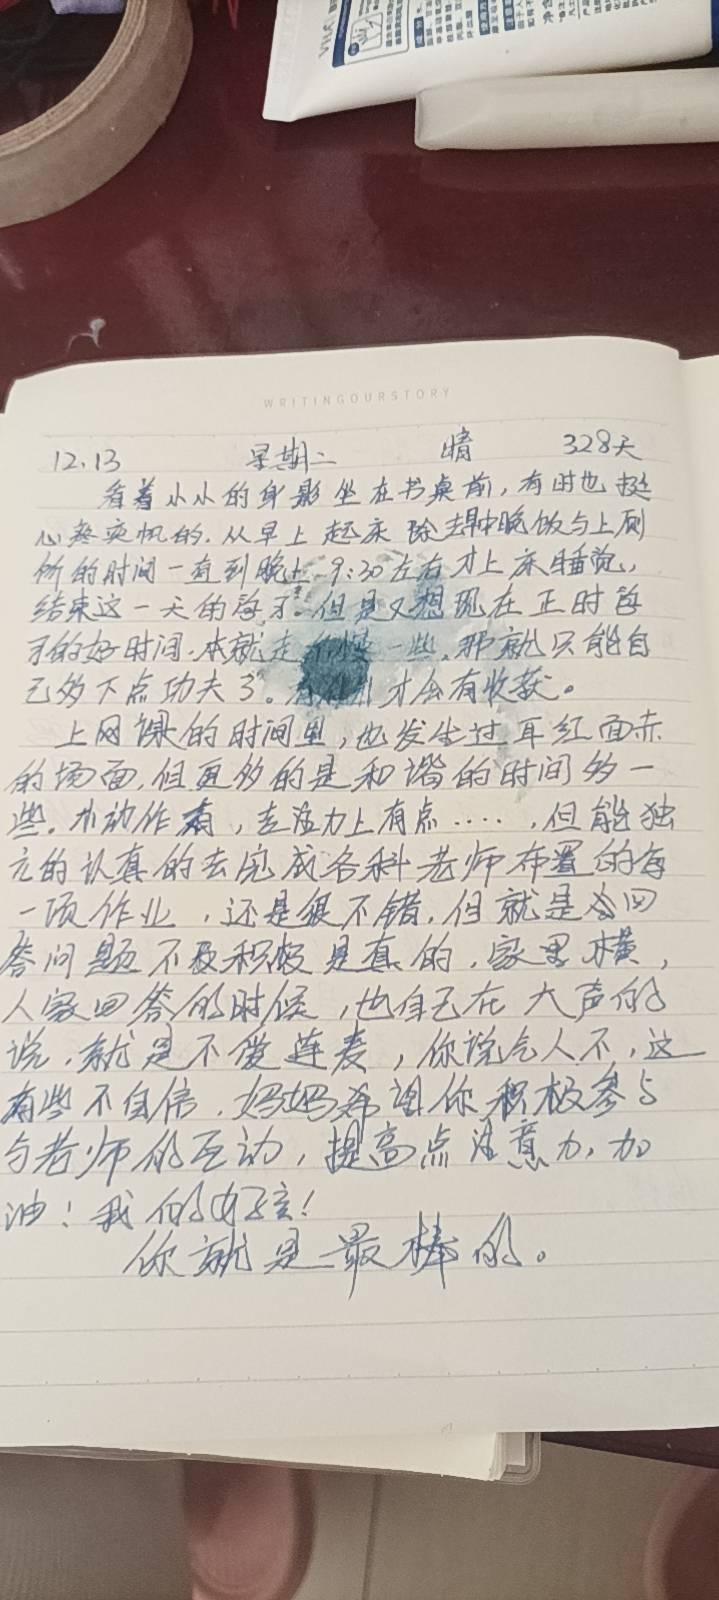 WRITINGOURSTORY
12.13 星期二 晴 328天
看着小小的身影坐在书桌前,有时也挺
心疼的.从早上起床 除去早中晚饭与上厕
所的时间一直到晚上9:30左右才上床睡觉,
结束这一天的学习.但是又想现在正时学
习的好时间.本就走的慢一些,那就只能自
己多下点功夫了。才会有收获。
上网课的时间里,也发生过耳红面赤
的场面,但更多的是和谐的时间多一
些.小动作有,注意力上有点.....,但能独
立的认真的去完成各科老师布置的每
一项作业,还是很不错.但就是回
答问题不及积极是真的.家里横,
人家回答的时候,也自己在大声的
说.就是不爱连麦,你说气人不,这
有些不自信.妈妈希望你积极参与
与老师的互动,提高点注意力.加
油!我的好孩!
你就是最棒的。